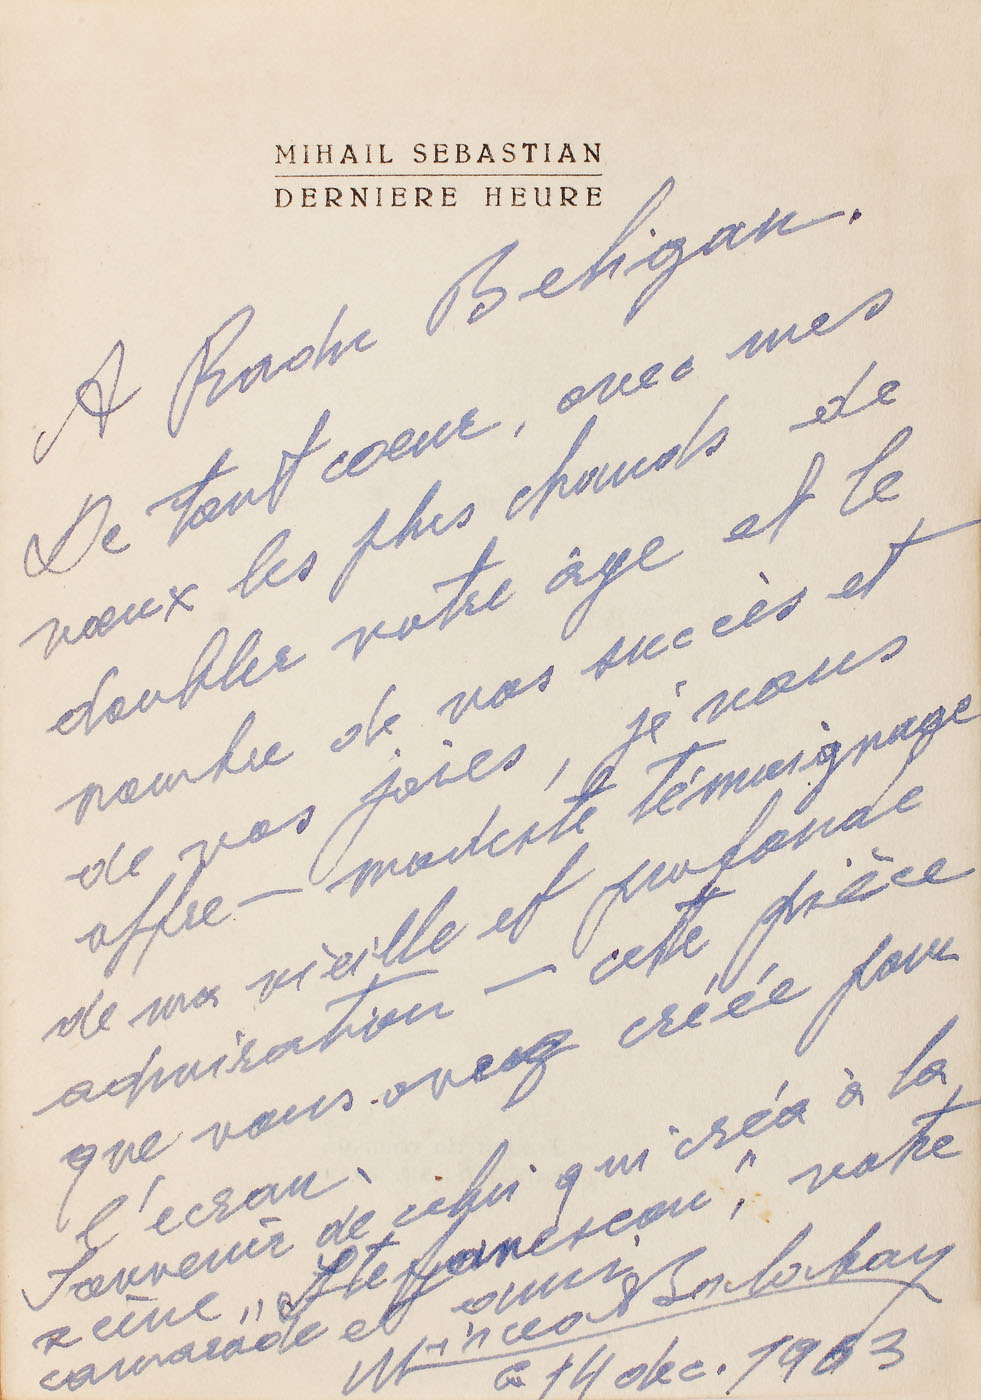 MIHAIL SEBASTIAN
DERNIERE HEURE
A Radu Beligan.
De tout cœur, avec mes
vœux les plus chauds de
doubler votre âge et le
nombre de vos succès et
de vos joies, je vous
offre — modeste témoignage
de ma vieille et profonde
admiration — cette pièce
que vous avez créée pour
l'écran.
Souvenir de celui qui créa à la
scène „Stefanescou", votre
camarade et ami
Mircea Balaban
14 dec. 1963